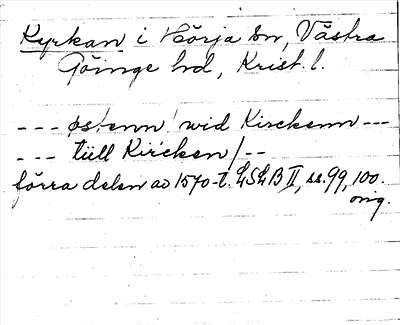 Kyrkan i Hörja sn, Västra
Göinge hd, Krist. l.
--- østenn wid Kirckenn ---
--- tiill Kircken/--
förra delen av 1570-t. LSLB II, ss. 99, 100.
orig.